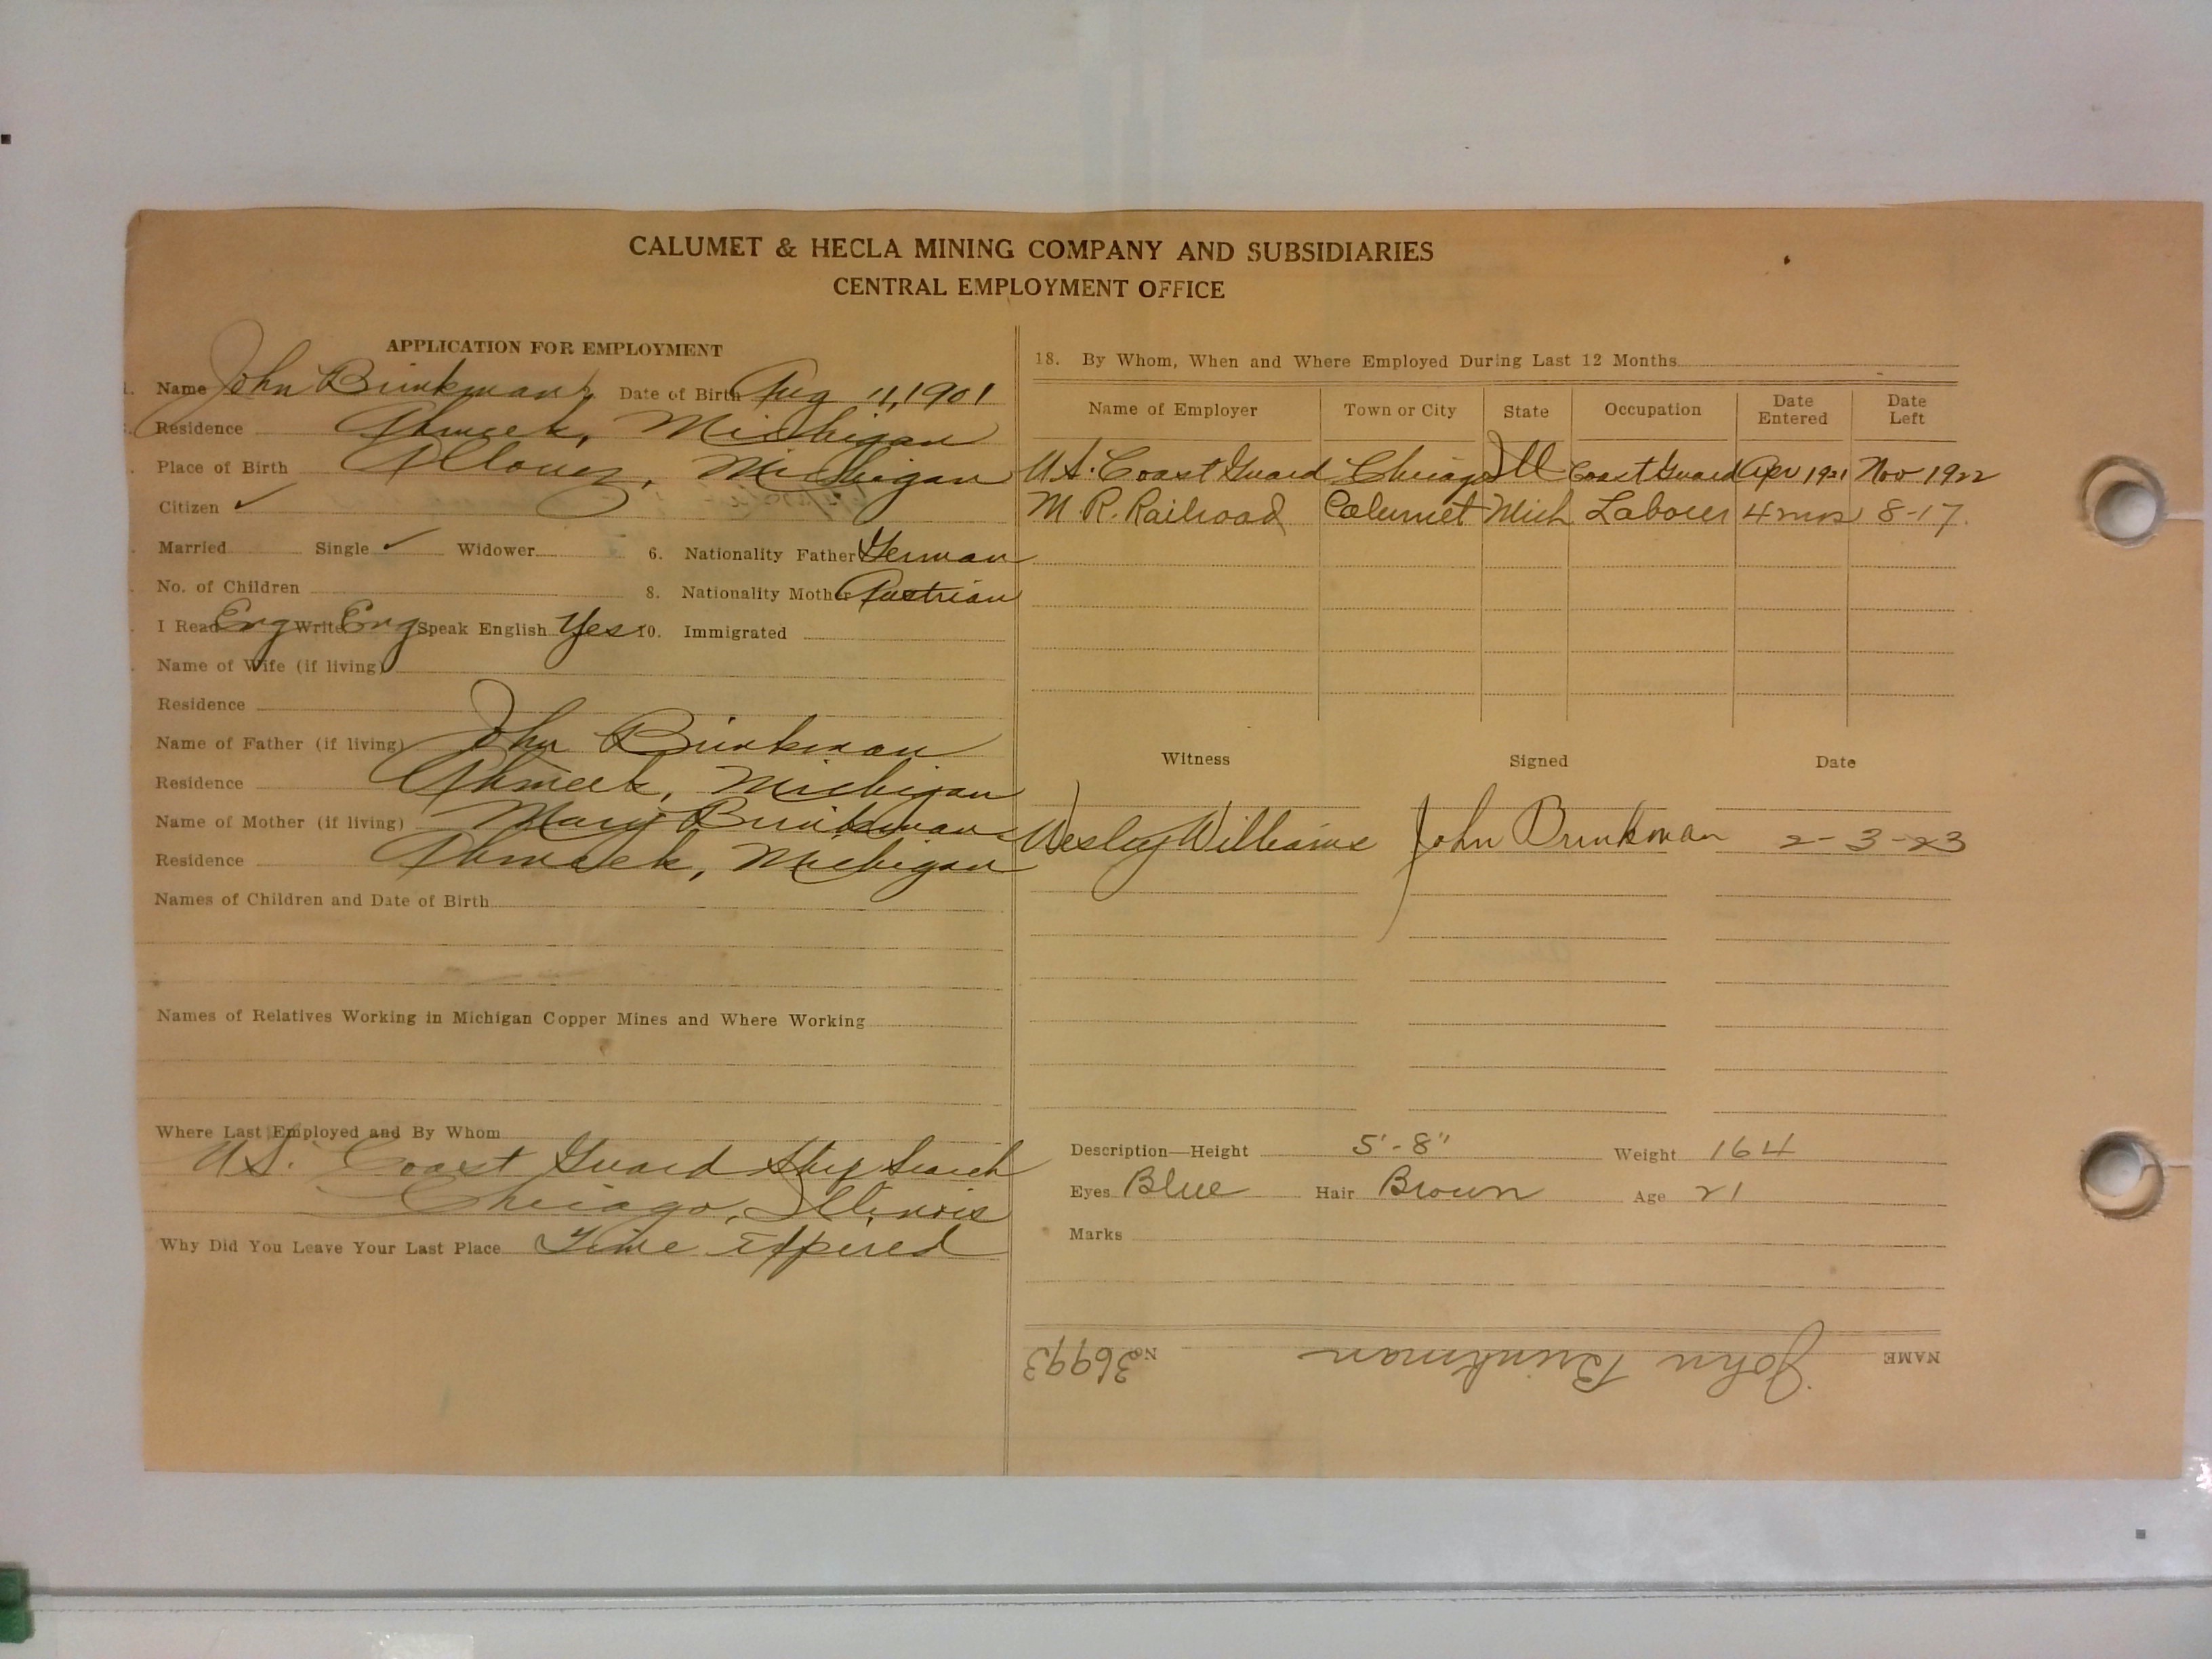 CALUMET & HECLA MINING COMPANY AND SUBSIDIARIES
CENTRAL EMPLOYMENT OFFICE
APPLICATION FOR EMPLOYMENT
Name John Brinkman Date of Birth Aug 11, 1901
Residence Ahmeek, Michigan
Place of Birth Allouez, Michigan
Citizen ✓
Married Single ✓ Widower 6. Nationality Father German
No. of Children 8. Nationality Mother Austrian
I Read Eng Write Eng Speak English Yes 10. Immigrated
Name of Wife (if living)
Residence
Name of Father (if living) John Brinkman
Residence Ahmeek, Michigan
Name of Mother (if living) Mary Brinkman
Residence Ahmeek, Michigan
Names of Children and Date of Birth
Names of Relatives Working in Michigan Copper Mines and Where Working
Where Last Employed and By Whom
U.S. Coast Guard Ship Search
Chicago, Illinois
Why Did You Leave Your Last Place Time Expired
18. By Whom, When and Where Employed During Last 12 Months
Name of Employer Town or City State Occupation Date Entered Date Left
U.S. Coast Guard Chicago Ill Coast Guard Apr 1921 Nov 1922
M. R. Railroad Calumet Mich Labourer 4 mos 8-17.
Witness Signed Date
Wesley Williams John Brinkman 2-3-23
Description—Height 5'-8" Weight 164
Eyes Blue Hair Brown Age 21
Marks
NAME John Brinkman No. 36993